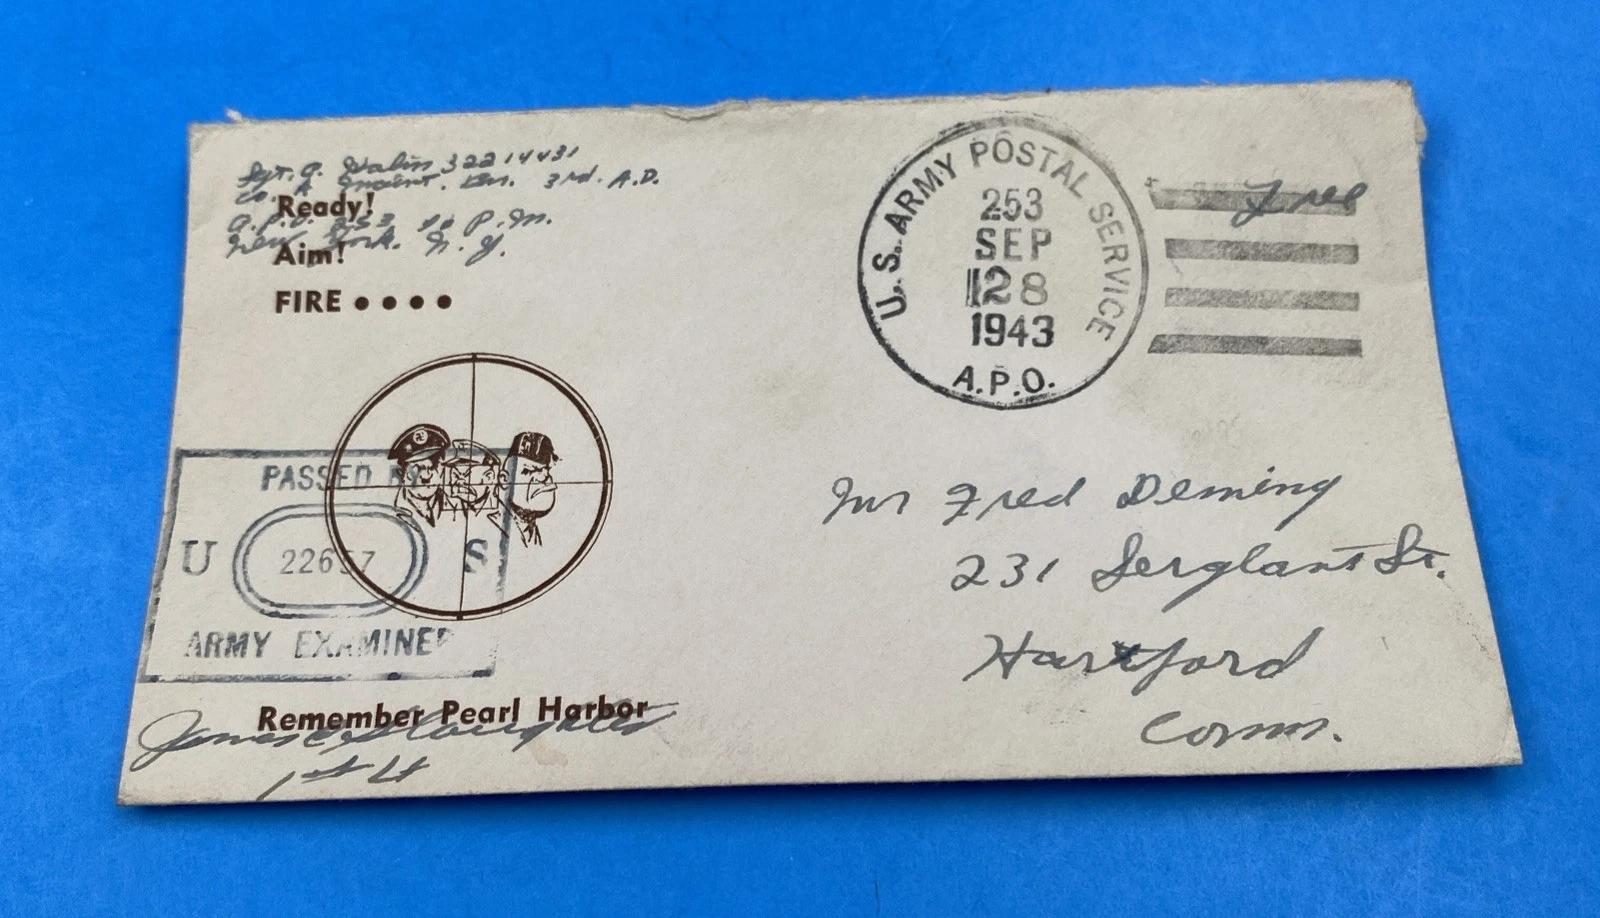 Sgt. A. 32214431
Co. A Maint. Bn. 3rd. A.D.
A.P.O. 253 % P.M.
New York. N.Y.
Ready!
Aim!
FIRE • • • •
U.S. ARMY POSTAL SERVICE
253
SEP
28
1943
A.P.O.
Free
PASSED BY
U 22657 S
ARMY EXAMINER
Mr Fred Deming
231 St.
Hartford
Conn.
Remember Pearl Harbor
James C Slaughter
1st Lt